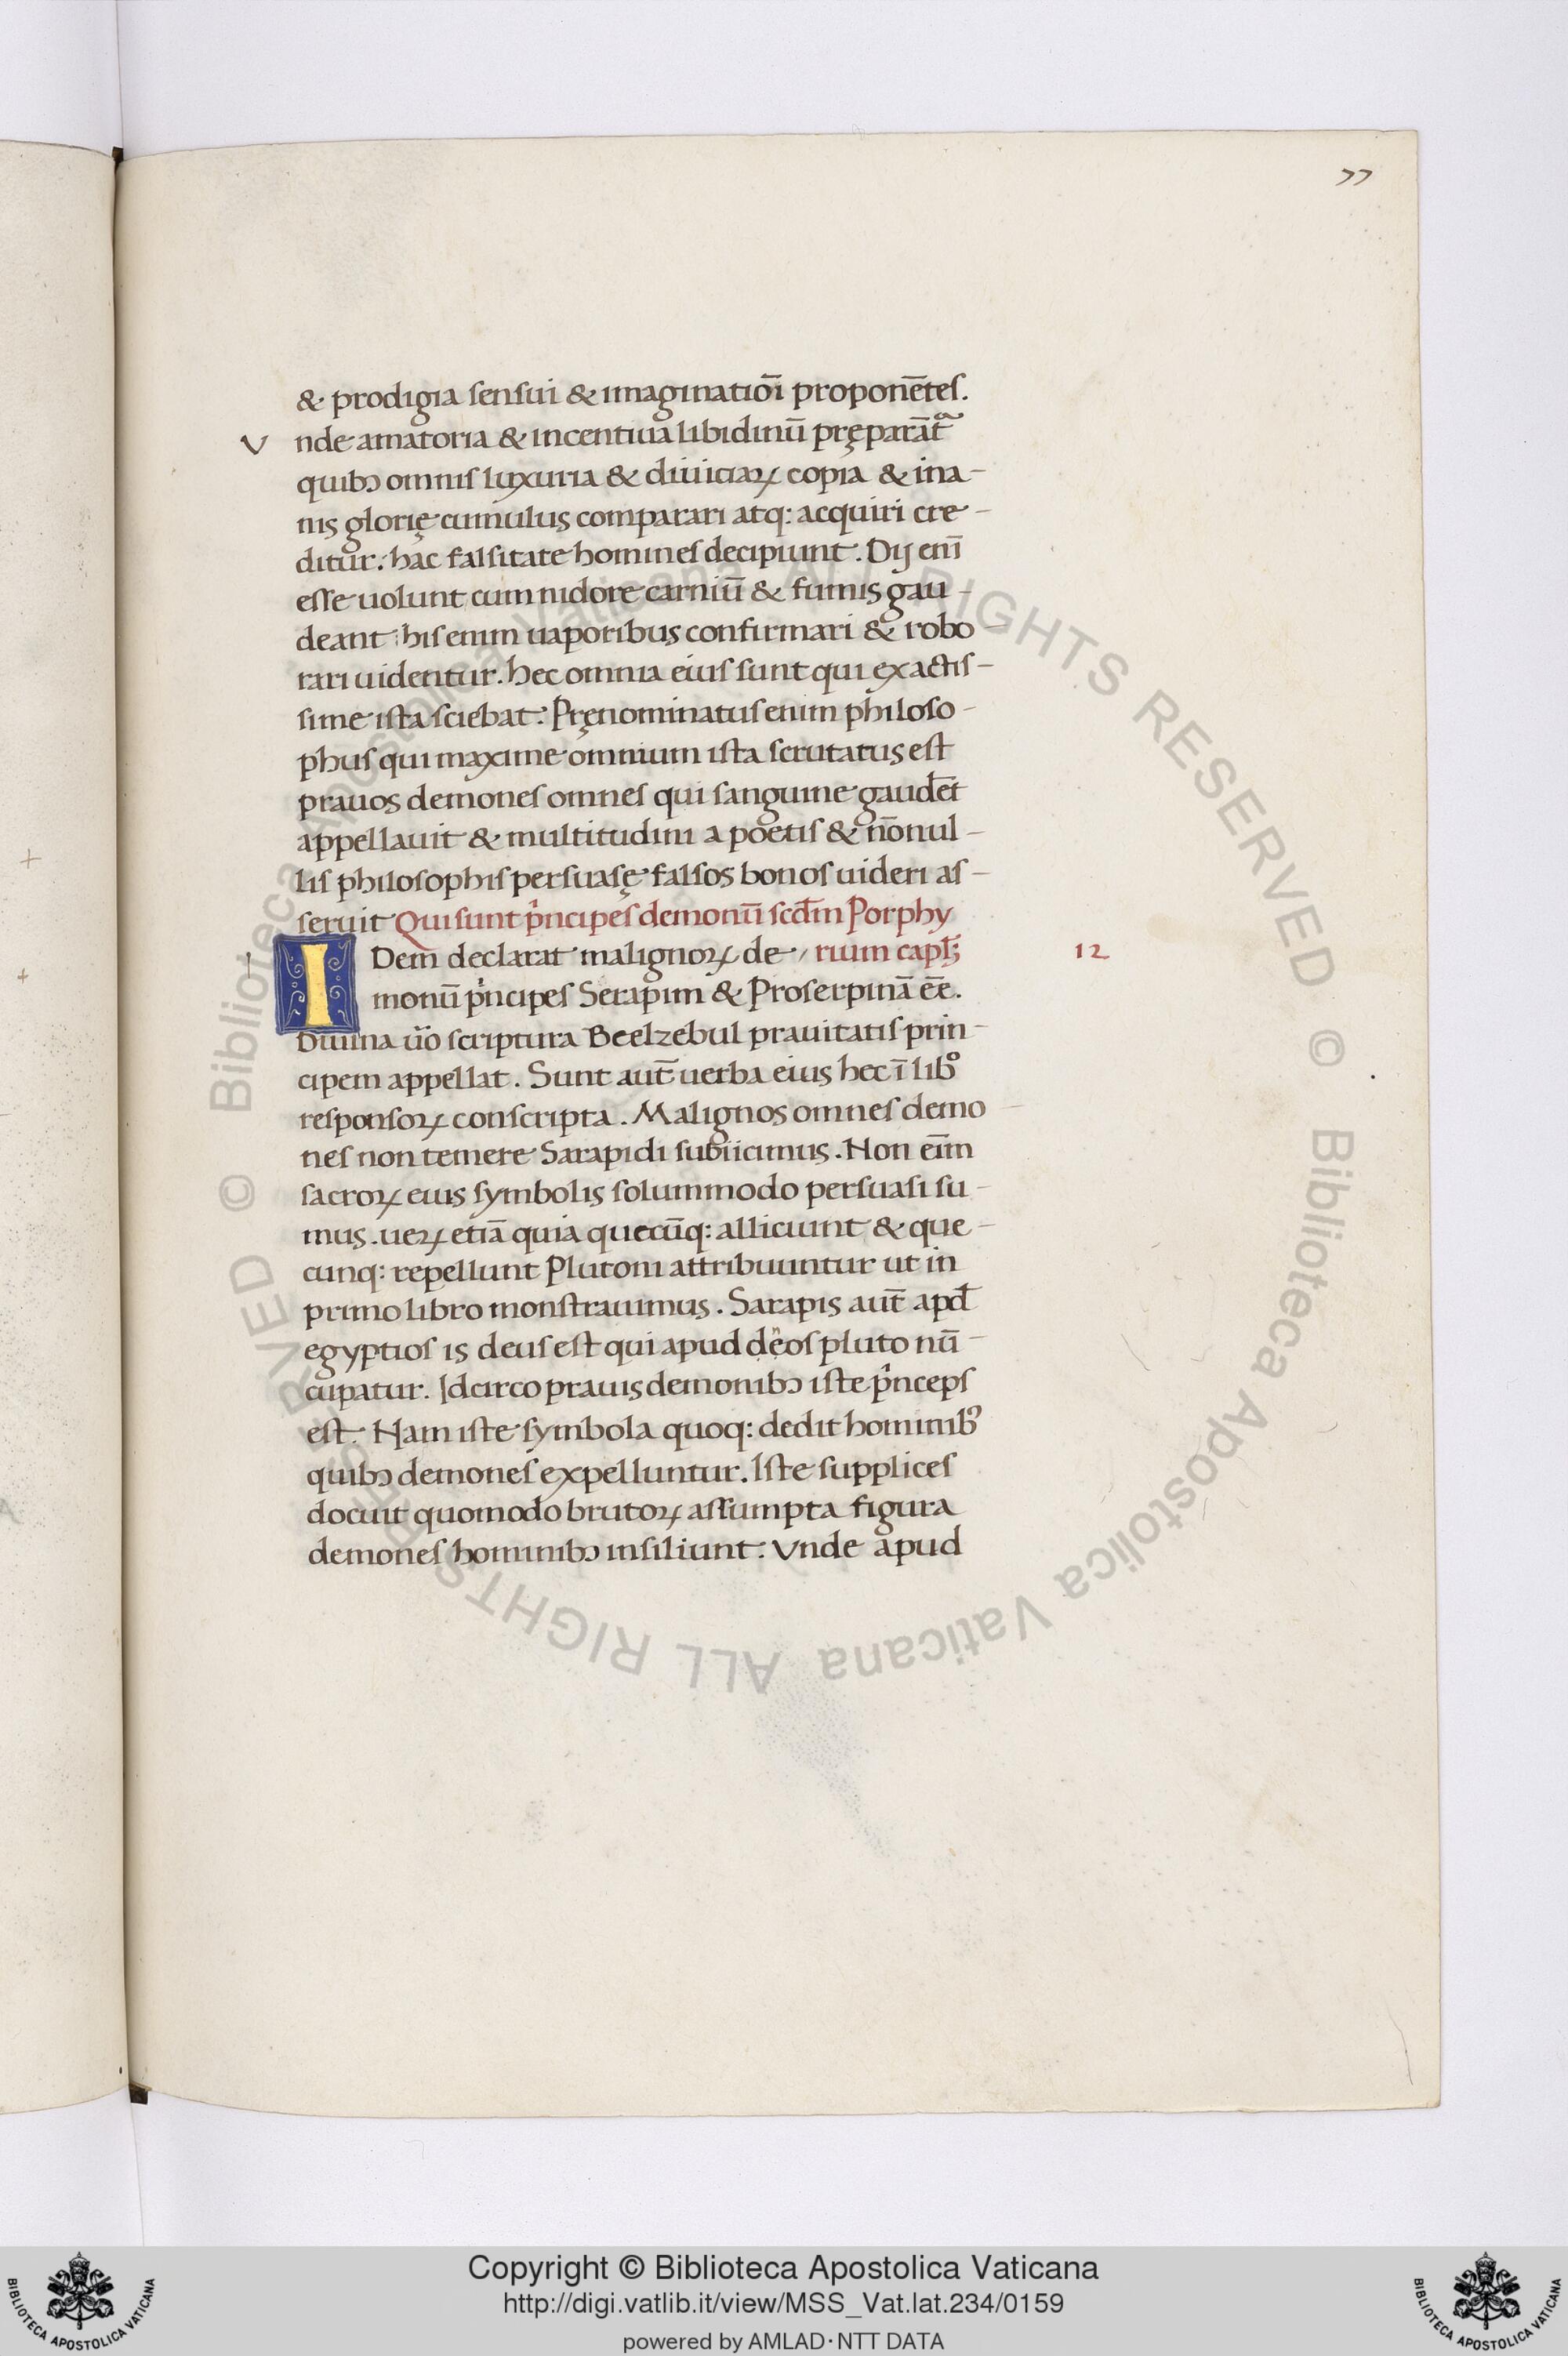 77
& prodigia sensui & imaginatiōi proponētes.
Vnde amatoria & incentiua libidinū pręparātᷓ
quibꝯ omnis luxuria & diuiciaꝝ copia & ina-
nis glorię cumulus comparari atq: acquiri cre-
ditur. hac falsitate homines decipiunt. Dij enī
esse uolunt cum nidore carniū & fumis gau-
deant: his enim uaporibus confirmari & robo
rari uidentur. hec omnia eius sunt qui exactis-
sime ista sciebat: Pręnominatus enim philoso-
phus qui maxime omnium ista scrutatus est
prauos demones omnes qui sanguine gaudēt
appellauit & multitudini a poetis & nōnul-
lis philosophis persuasę falsos bonos uideri as-
seruit Qui sunt p̍ncipes demonū scd̄m Porphy
IDem declarat malignoꝝ de-, rium capl̄ꝫ 12
monū p̍ncipes Serapim & Proserpinā eē.
Diuina u̇o scriptura Beelzebul prauitatis prin-
cipem appellat. Sunt aut̄ uerba eius hec ī libº
responsoꝝ conscripta. Malignos omnes demo
nes non temere Sarapidi subiicimus. Non eīm
sacroꝝ eius symbolis solummodo persuasi su-
mus. ueꝝ etiā quia quecūq: alliciunt & que-
cunq: repellunt Plutoni attribuuntur ut in
primo libro monstrauimus. Sarapis aut̄ apd̄
egyptios is deus est qui apud dęos pluto nū-
cupatur. Idcirco prauis demonibꝯ iste p̍nceps
est. Nam iste symbola quoq: dedit hominibꝰ
quibꝯ demones expelluntur. Iste supplices
docuit quomodo brutoꝝ assumpta figura
demones hominibꝯ insiliunt: Vnde apud
© Biblioteca Apostolica Vaticana ALL RIGHTS RESERVED © Biblioteca Apostolica Vaticana ALL RIGHTS RESERVED
Copyright © Biblioteca Apostolica Vaticana
http://digi.vatlib.it/view/MSS_Vat.lat.234/0159
powered by AMLAD·NTT DATA
BIBLIOTECA APOSTOLICA VATICANA
BIBLIOTECA APOSTOLICA VATICANA